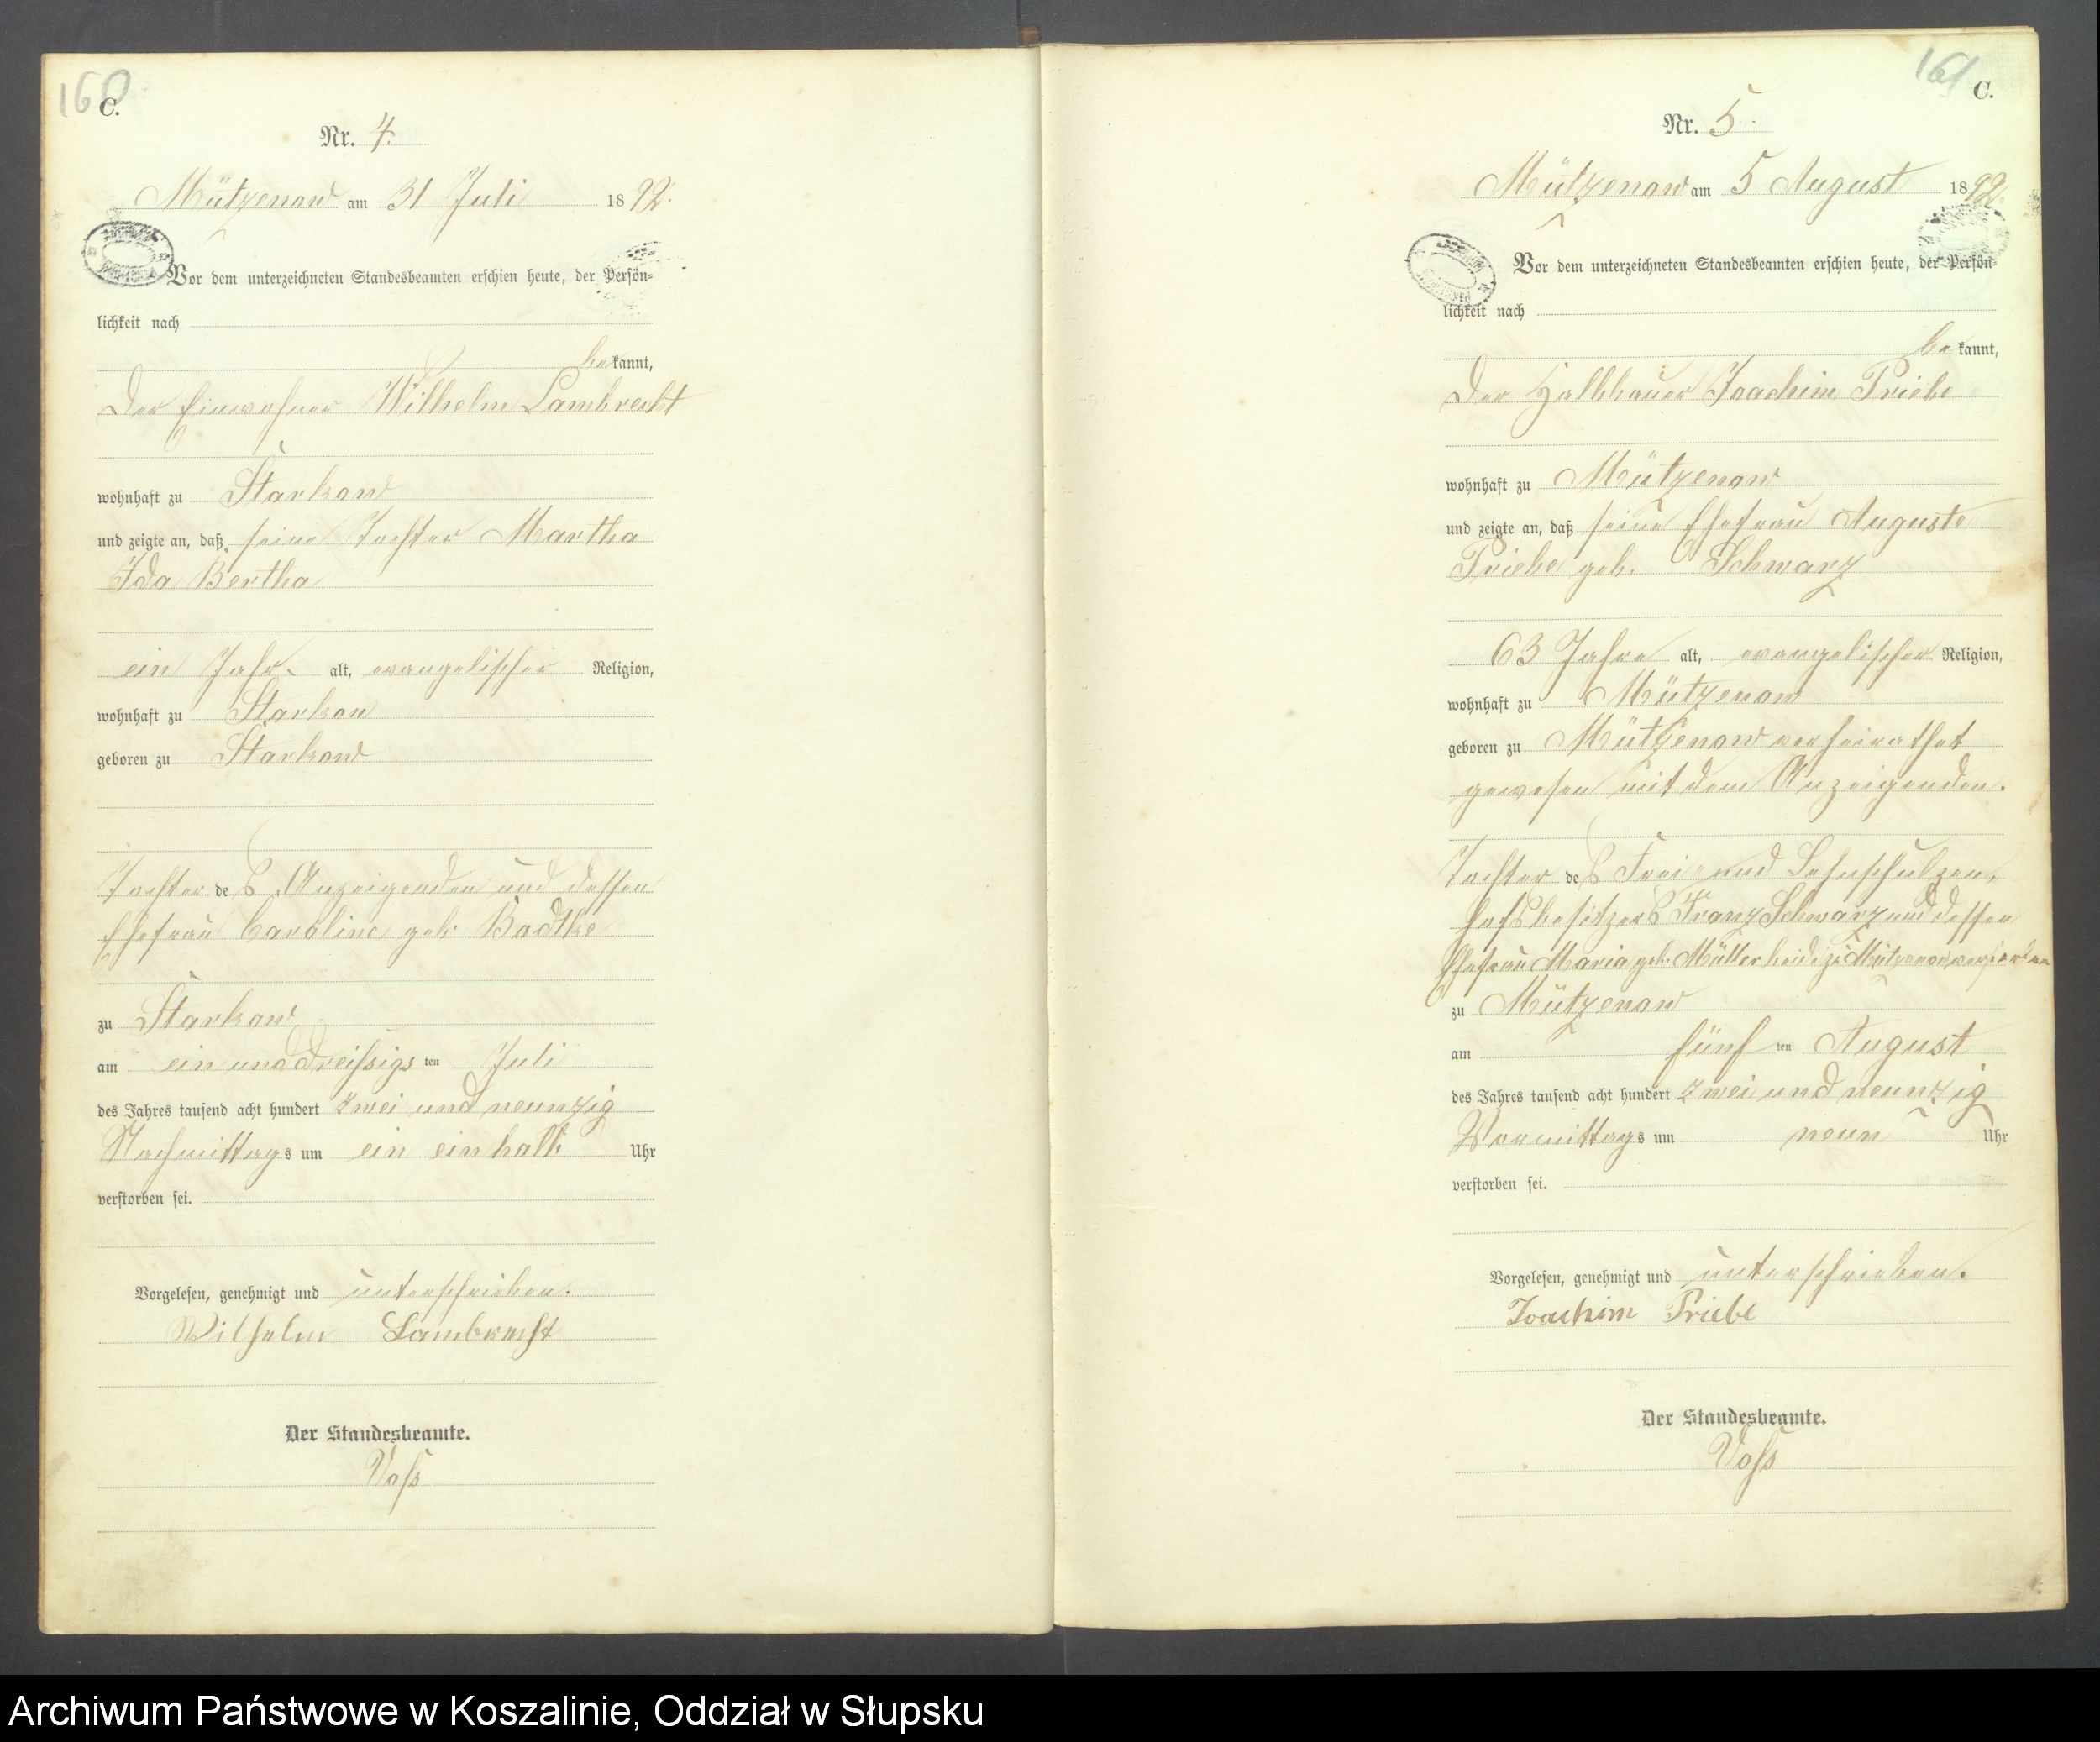 160
C.
Nr. 4.
Mützenow am 31 Juli 1892.
Vor dem unterzeichneten Standesbeamten erschien heute, der Persön-
lichkeit nach
bekannt,
Der Einwohner Wilhelm Lambrecht
wohnhaft zu Starkow
und zeigte an, daß seine Tochter Martha
Ida Bertha
ein Jahr alt, evangelischer Religion,
wohnhaft zu Starkow
geboren zu Starkow
Tochter des Anzeigenden und dessen
Ehefrau Caroline geb. Badtke
zu Starkow
am ein und dreißigsten Juli
des Jahres tausend acht hundert zwei und neunzig
Nachmittags um ein einhalb Uhr
verstorben sei.
Vorgelesen, genehmigt und unterschrieben.
Wilhelm Lambrecht
Der Standesbeamte.
Voß
161
C.
Nr. 5.
Mützenow am 5 August 1892.
Vor dem unterzeichneten Standesbeamten erschien heute, der Persön-
lichkeit nach
bekannt,
Der Halbbauer Joachim Priebe
wohnhaft zu Mützenow
und zeigte an, daß seine Ehefrau Auguste
Priebe geb. Schwarz
63 Jahre alt, evangelischer Religion,
wohnhaft zu Mützenow
geboren zu Mützenow verheirathet
gewesen mit dem Anzeigenden.
Tochter des Frei- und Lehnschulzen-
hofsbesitzers Franz Schwarz und dessen
Ehefrau Maria geb. Müller beide zu Mützenow verstorben
zu Mützenow
am fünften August
des Jahres tausend acht hundert zwei und neunzig
Vormittags um neun Uhr
verstorben sei.
Vorgelesen, genehmigt und unterschrieben.
Joachim Priebe
Der Standesbeamte.
Voß
Archiwum Państwowe w Koszalinie, Oddział w Słupsku